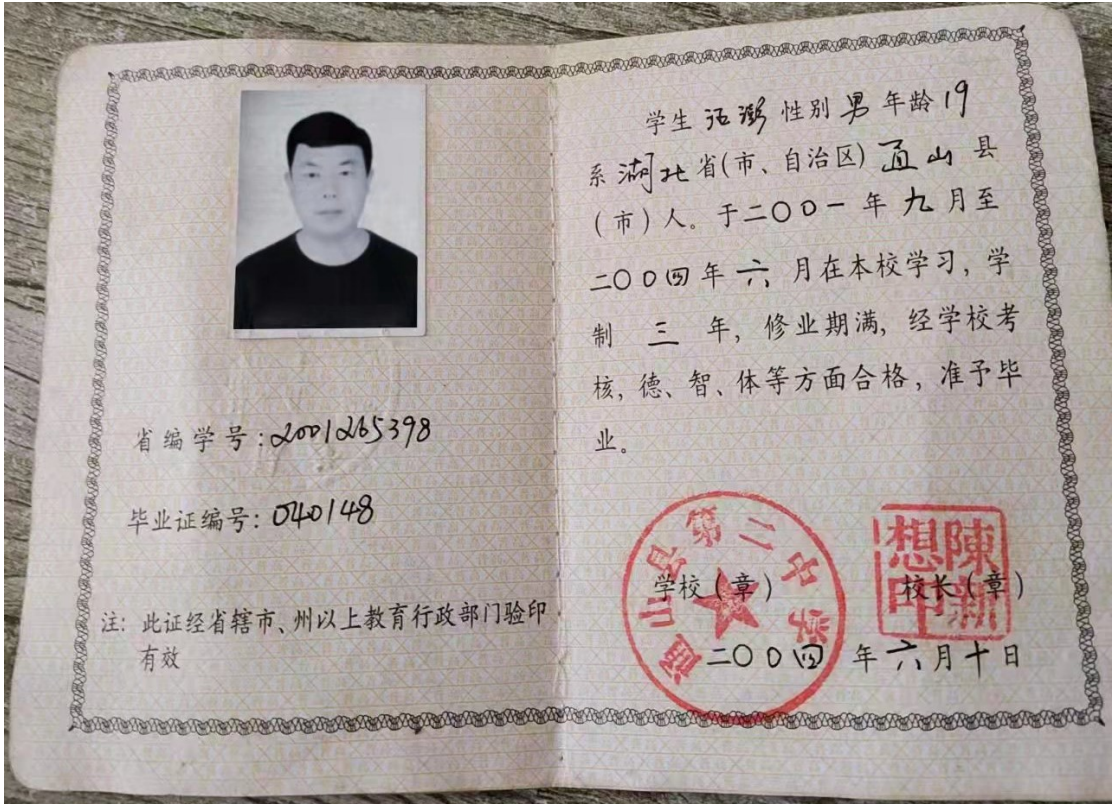 省编学号:2001265398
毕业证编号:040148
注: 此证经省辖市、州以上教育行政部门验印
有效
学生 汪澎 性别 男 年龄 19
系 湖北 省(市、自治区) 通山 县
(市)人。于二〇〇一 年 九 月至
二〇〇四 年 六 月在本校学习, 学
制 三 年, 修业期满, 经学校考
核, 德、智、体等方面合格, 准予毕
业。
通山县第二中学
陳新想印
学校(章) 校长(章)
二〇〇四 年 六 月 十 日